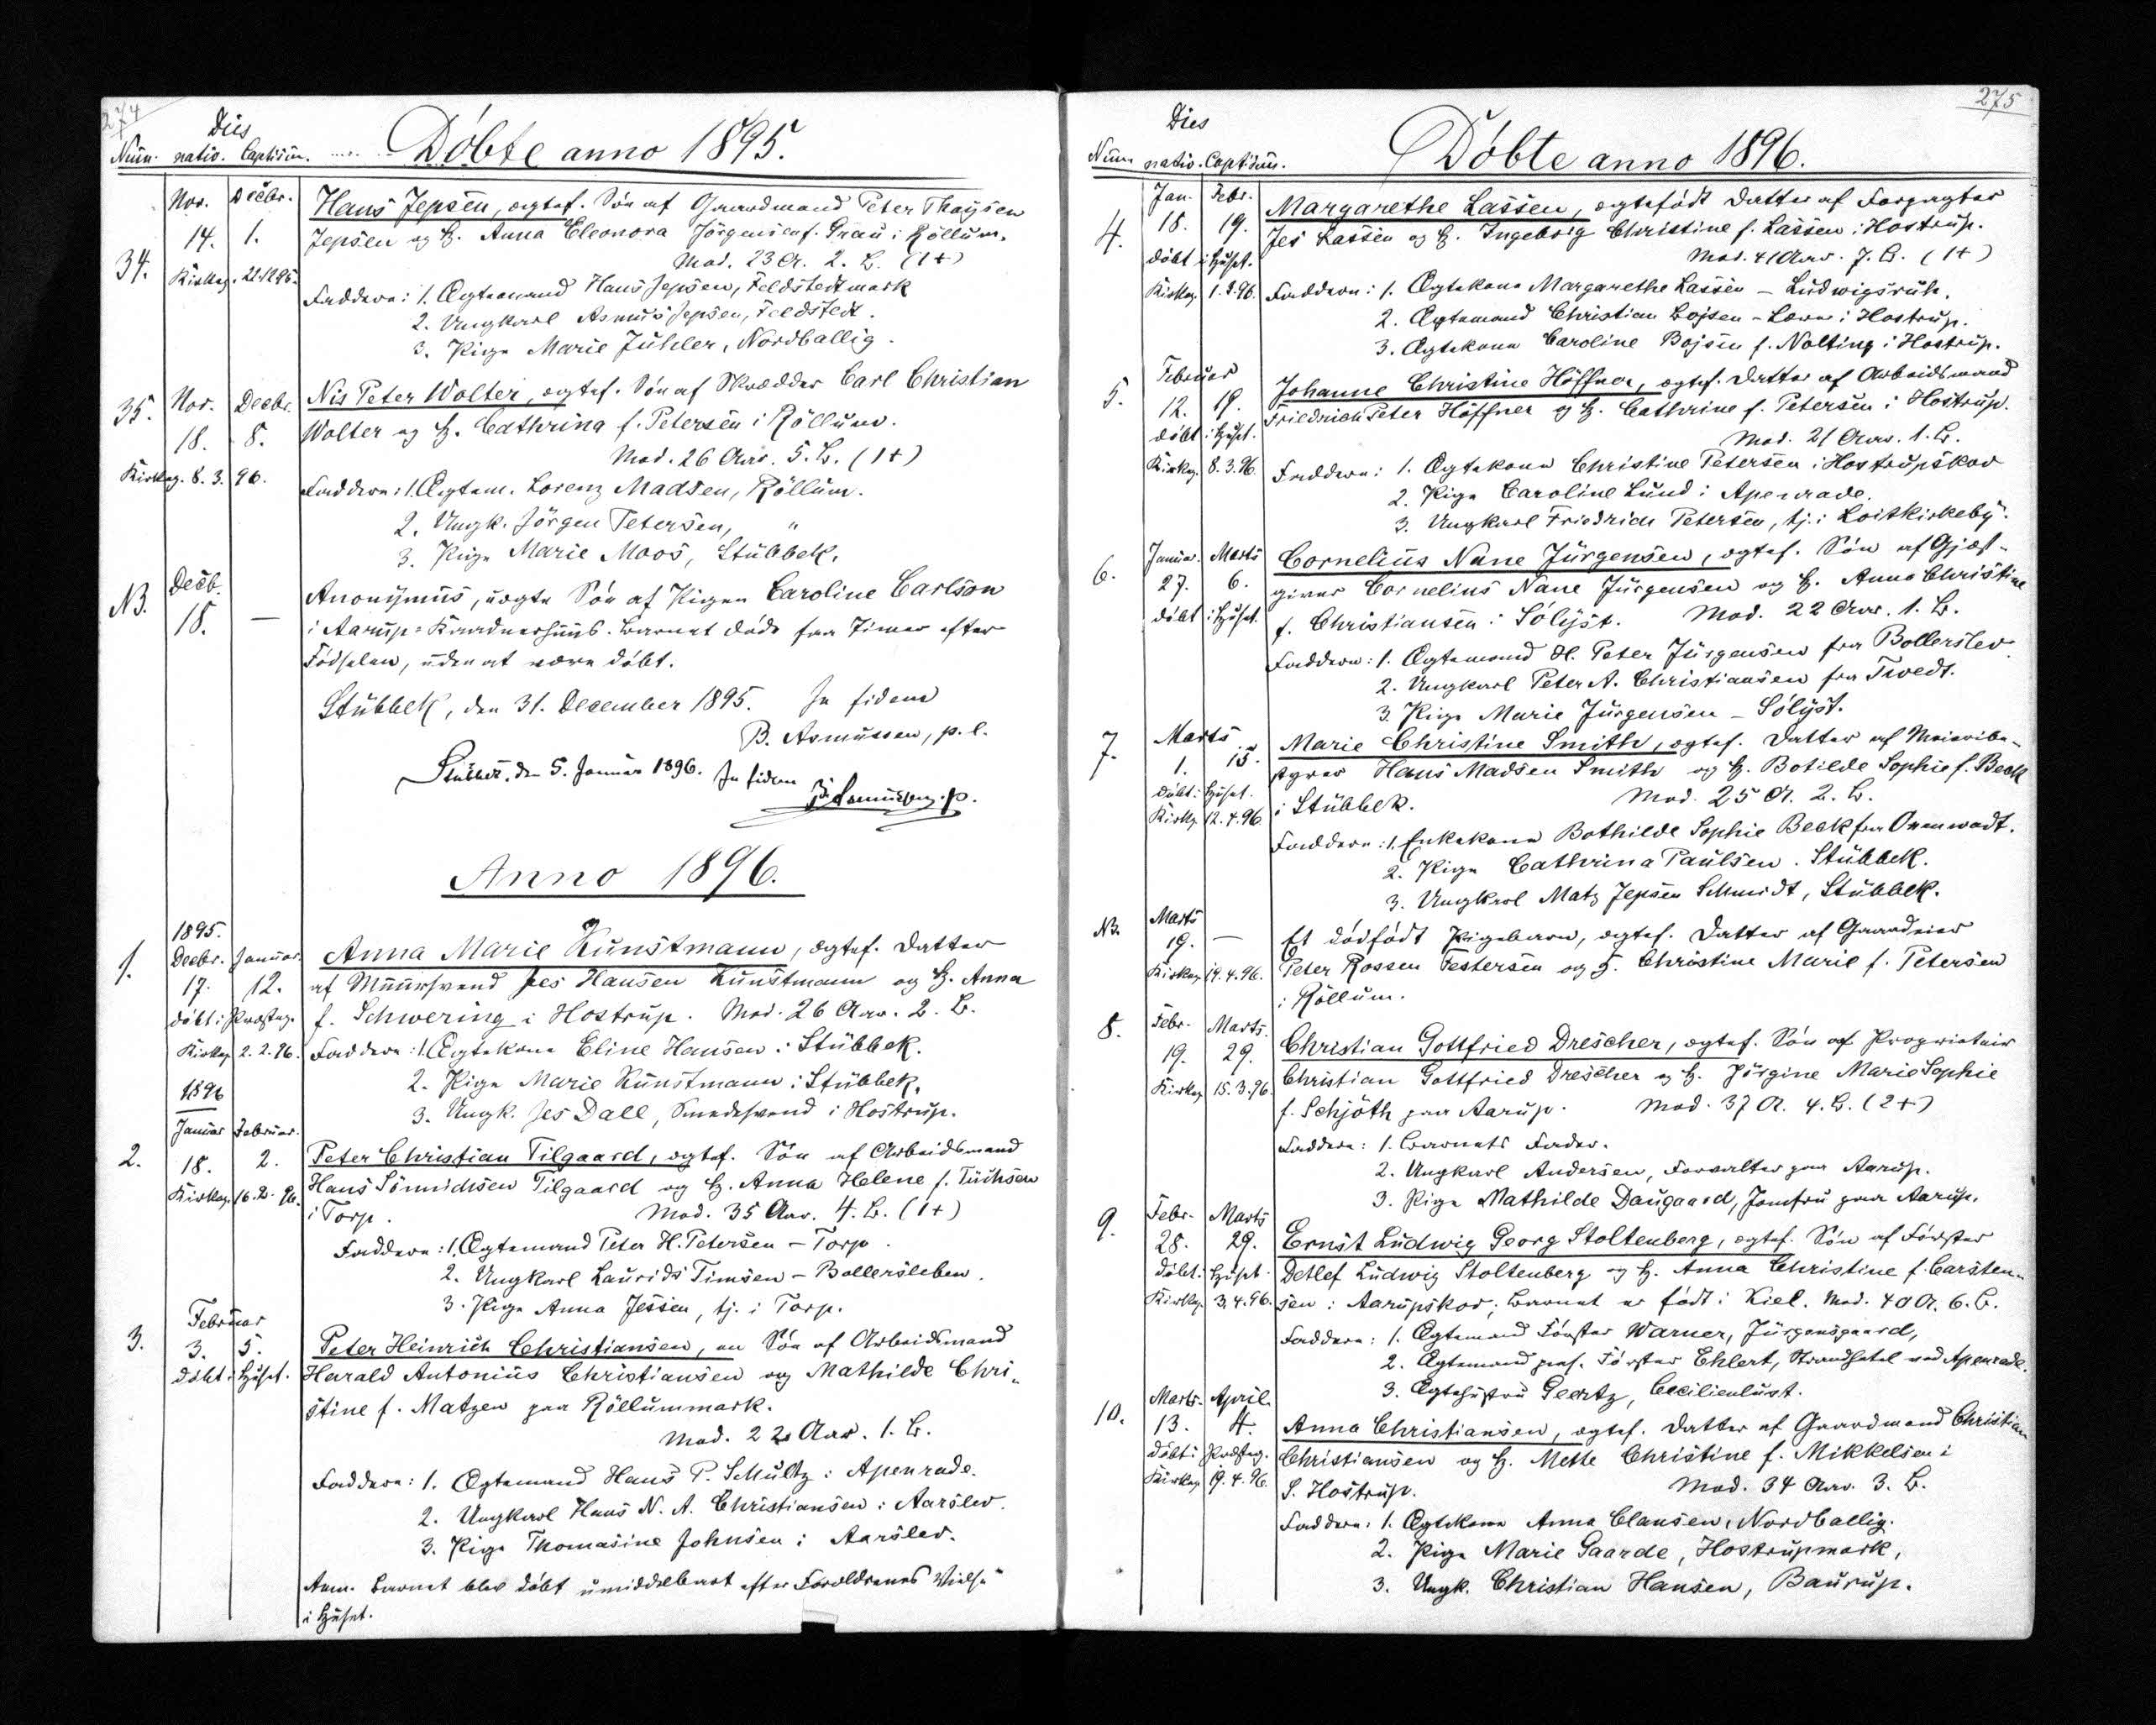 274
Dies
Num. nativ. baptism. Döbte anno 1895.
Nov. Decbr. Hans Jepsen, ægtef. Søn af Gaardmand Peter Thaysen
14. 1. Jepsen og H. Anna Eleonora Jörgensen f. Grau i Röllum.
34. Kirkeg. 22.12.95. Mod. 23 A. 2. B. (1+)
Faddere: 1. Ægtemand Hans Jepsen, Feldstedtmark
2. Ungkarl Asmus Jepsen, Feldstedt.
3. Pige Marie Juhler, Nordballig.
35. Nov. Decbr. Nis Peter Wolter, ægtef. Søn af Skrædder Carl Christian
18. 8. Wolter og H. Cathrina f. Petersen i Röllum.
Mod. 26 Aar. 5. B. (1+)
Kirkeg. 8. 3. 96. Faddere: 1. Ægtem. Lorenz Madsen, Röllum.
2. Ungk. Jörgen Petersen, "
3. Pige Marie Moos, Stübbek.
NB. Decb. 18. — Anonymus, uægte Søn af Pigen Caroline Carlson
i Aarup-Kaadnerhuus. Barnet döde faa Timer efter
Födselen, uden at være döbt.
Stübbek, den 31. December 1895. In fidem
B. Asmussen, p. l.
Stübbek, den 5. Januar 1896. In fidem
B. Asmussen, p.
Anno 1896.
1895.
1. Decbr. Januar. Anna Marie Kunstmann, ægtef. Datter
17. 12. af Muursvend Jes Hansen Kunstmann og H. Anna
döbt i Præsteg. f. Schwering i Hostrup. Mod. 26 Aar. 2. B.
Kirkeg. 2. 2. 96. Faddere: 1. Ægtekone Eline Hansen i Stübbek.
2. Pige Marie Kunstmann i Stübbek.
1896
3. Ungk. Jes Dall, Smedesvend i Hostrup.
Januar Februar.
2. 18. 2. Peter Christian Tilgaard, ægtef. Søn af Arbeidsmand
Kirkeg. 16. 2. 96. Hans Sönnichsen Tilgaard og H. Anna Helene f. Tüchsen
i Torp. Mod. 35 Aar. 4. B. (1+)
Faddere: 1. Ægtemand Peter H. Petersen – Torp.
2. Ungkarl Laurids Timsen – Bollersleben.
3. Pige Anna Jessen, tj. i Torp.
Februar
3. 3. 5. Peter Heinrich Christiansen, en Søn af Arbeidsmand
döbt i Huset. Harald Antonius Christiansen og Mathilde Chri-
stine f. Matzen paa Röllummark.
Mod. 22 Aar. 1. B.
Faddere: 1. Ægtemand Hans P. Schultz i Apenrade.
2. Ungkarl Hans N. A. Christiansen i Aarslev.
3. Pige Thomasine Johnsen i Aarslev.
Anm. Barnet blev döbt umiddelbart efter Forældrenes Vielse
i Huset.
275
Dies
Num. nativ. baptism. Döbte anno 1896.
Jan. Febr. Margarethe Lassen, ægtefödt Datter af Forpagter
4. 18. 19. Jes Lassen og H. Ingeborg Christine f. Lassen i Hostrup.
döbt i Huset. Mod. 41 Aar. 7. B. (1+)
Kirkeg. 1. 3. 96. Faddere: 1. Ægtekone Margarethe Lassen – Ludwigsruh.
2. Ægtemand Christian Bojsen – Lærer i Hostrup.
3. Ægtekone Caroline Bojsen f. Nolting i Hostrup.
Februar
5. 12. 19. Johanne Christine Höffner, ægtef. Datter af Arbeidsmand
döbt i Huset. Friedrich Peter Höffner og H. Cathrine f. Petersen i Hostrup.
Mod. 21 Aar. 1. B.
Kirkeg. 8. 3. 96. Faddere: 1. Ægtekone Christine Petersen i Hostrupskov
2. Pige Caroline Lund i Apenrade.
3. Ungkarl Friedrich Petersen, tj. i Loitkirkeby.
6. Januar. Marts Cornelius Nane Jürgensen, ægtef. Søn af Gjæst-
27. 6. giver Cornelius Nane Jürgensen og H. Anna Christine
döbt i Huset. f. Christiansen i Sölyst. Mod. 22 Aar. 1. B.
Faddere: 1. Ægtemand H. Peter Jürgensen fra Bollerslev
2. Ungkarl Peter A. Christiansen fra Tvedt.
3. Pige Marie Jürgensen – Sölyst.
7. Marts
1. 15. Marie Christine Smith, ægtef. Datter af Meieribe-
döbt i Huset. styrer Hans Madsen Smith og H. Botilde Sophie f. Beck
Kirkeg. 12. 4. 96. i Stübbek. Mod. 25 A. 2. B.
Faddere: 1. Enkekone Bothilde Sophie Beck fra Oxenwadt.
2. Pige Cathrina Paulsen. Stübbek.
3. Ungkarl Matz Jepsen Schmidt, Stübbek.
NB. Marts
19. — Et dödfödt Pigebarn, ægtef. Datter af Gaardeier
Kirkeg. 19. 4. 96. Peter Rossen Festersen og H. Christine Marie f. Petersen
i Röllum.
8. Febr. Marts.
19. 29. Christian Gottfried Drescher, ægtef. Søn af Proprietair
Kirkeg. 15. 3. 96. Christian Gottfried Drescher og H. Jörgine Marie Sophie
f. Schjöth paa Aarup. Mod. 37 A. 4. B. (2+)
Faddere: 1. Barnets Fader.
2. Ungkarl Andersen, Forvalter paa Aarup.
3. Pige Mathilde Daugaard, Jomfru paa Aarup.
9. Febr. Marts
28. 29. Ernst Ludwig Georg Stoltenberg, ægtef. Søn af Förster
döbt i Huset. Detlef Ludwig Stoltenberg og H. Anna Christine f. Carsten-
Kirkeg. 3. 4. 96. sen i Aarupskov; Barnet er födt i Kiel. Mod. 40 A. 6. B.
Faddere: 1. Ægtemand Förster Warner, Jürgensgaard,
2. Ægtemand pens. Förster Ehlert, Strandhotel ved Apenrade.
3. Ægtehustru Geertz, Cecilienlust.
10. Marts. April.
13. 4. Anna Christiansen, ægtef. Datter af Gaardmand Christian
döbt i Præsteg. Christiansen og H. Mette Christine f. Mikkelsen i
Kirkeg. 19. 4. 96. S. Hostrup. Mod. 34 Aar. 3. B.
Faddere: 1. Ægtekone Anna Clausen, Nordballig.
2. Pige Marie Gaarde, Hostrupmark,
3. Ungk. Christian Hansen, Baurup.